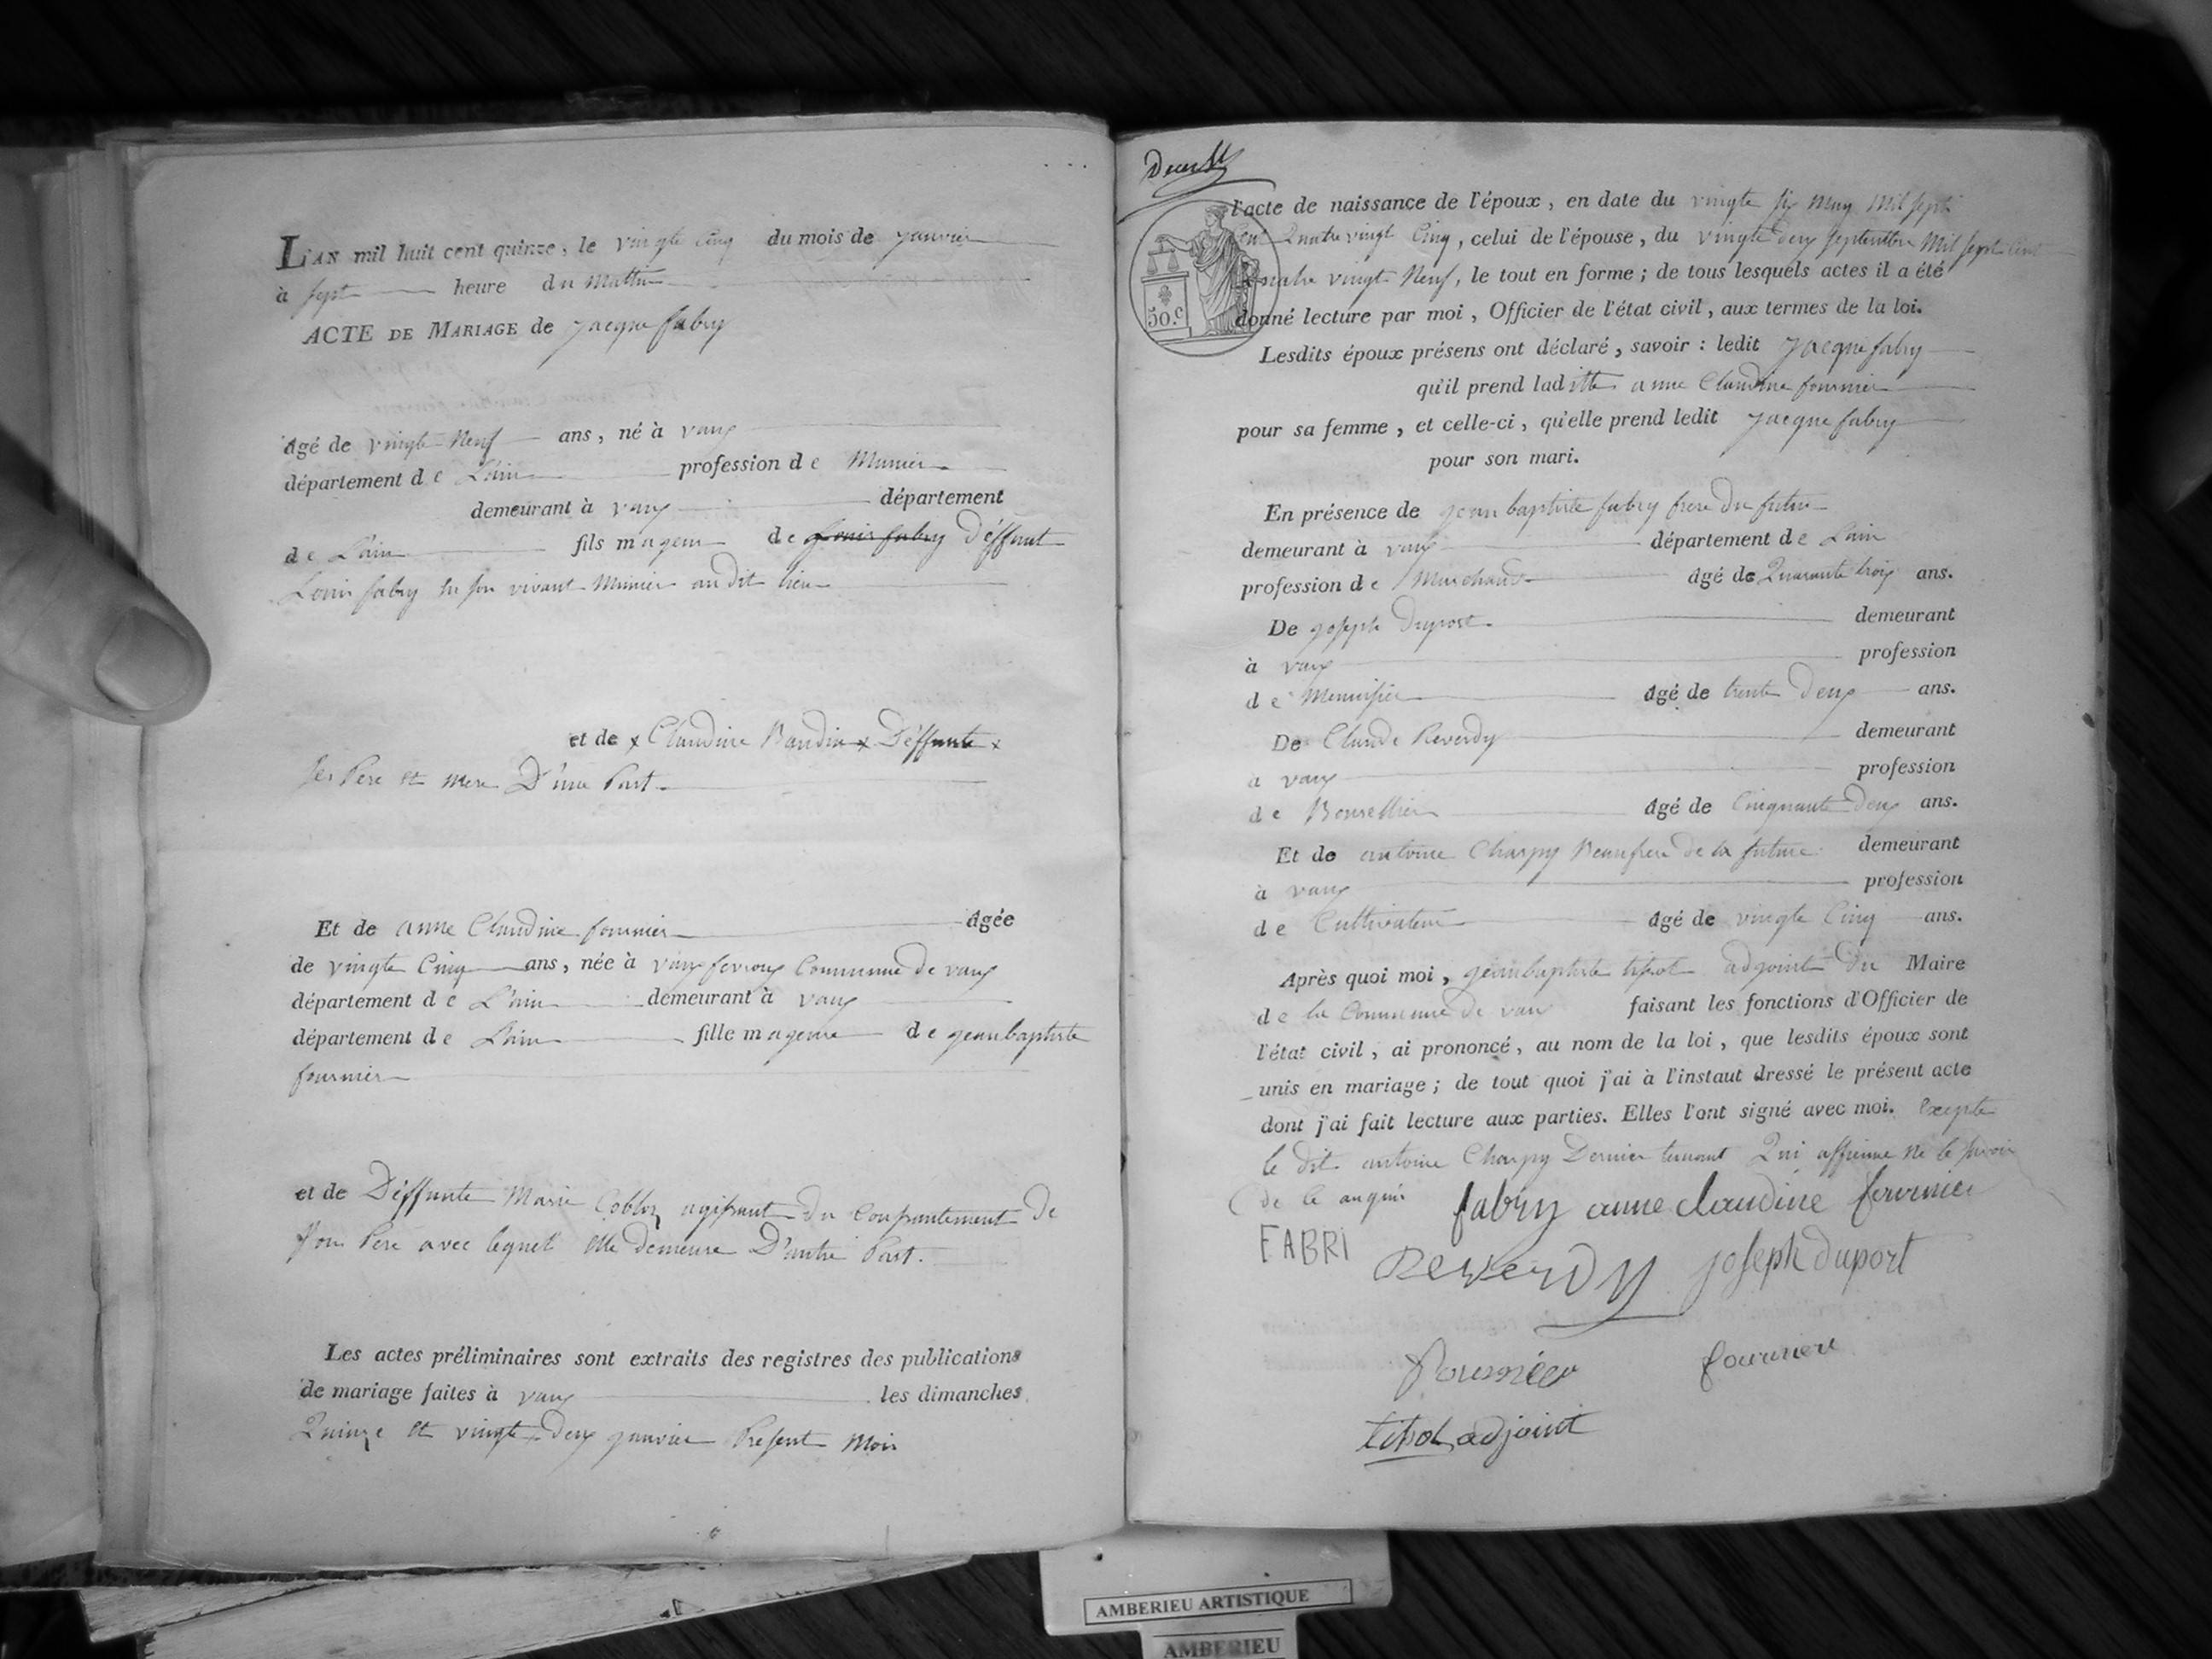 L'AN mil huit cent quinze, le vingte Cinq du mois de janvier
à sept heure du Mattin
ACTE DE MARIAGE de jacque fabry
âgé de vingte Neuf ans, né à vaux
département de L'ain profession de Munier
demeurant à vaux département
de L'ain fils mageur de Louis fabry Déffunt
Louis fabry en son vivant Munier au dit lieu
et de x Claudine Baudin x Déffunte x
ses Pere et mere D'une Part
Et de anne Claudine fournier âgée
de vingte Cinq ans, née à vaux fevroux Commune de vaux
département de L'ain demeurant à vaux
département de L'ain fille mageure de geanbaptiste
fournier
et de Déffunte Marie agissant du Consantement de
son Pere avec lequel elle demeure D'autre Part.
Les actes préliminaires sont extraits des registres des publications
de mariage faites à vaux les dimanches
Quinze et vingte-deux janvier Present Mois
l'acte de naissance de l'époux, en date du vingte six may Mil sept
Cent Quatre vingt Cinq, celui de l'épouse, du vingte deux septembre Mil sept Cent
Quatre vingt Neuf, le tout en forme; de tous lesquels actes il a été
50.c
donné lecture par moi, Officier de l'état civil, aux termes de la loi.
Lesdits époux présens ont déclaré, savoir: ledit jacque fabry
qu'il prend laditte anne Claudine fournier
pour sa femme, et celle-ci, qu'elle prend ledit jacque fabry
pour son mari.
En présence de gean baptiste fabry frere du futur
demeurant à vaux département de L'ain
profession de Marchand âgé de Quarante trois ans.
De goseph Duport demeurant
à vaux profession
de Menuisier âgé de trente Deux ans.
De Claude Reverdy demeurant
à vaux profession
de Bourellier âgé de Cinquante Deux ans.
Et de antoine Charpy Beaufrere de la future demeurant
à vaux profession
de Cultivateur âgé de vingte Cinq ans.
Après quoi moi, geanbaptiste tissot adjoint du Maire
de la Commune de vaux faisant les fonctions d'Officier de
l'état civil, ai prononcé, au nom de la loi, que lesdits époux sont
unis en mariage; de tout quoi j'ai à l'instant dressé le présent acte
dont j'ai fait lecture aux parties. Elles l'ont signé avec moi. Excepte
le dit antoine Charpy Dernier temoint Qui affirme ne le savoir
de ce anquis fabry anne claudine fournier
FABRI REVERDY joseph duport
fournier fourniere
tissot adjoint
AMBERIEU ARTISTIQUE
AMBERIEU